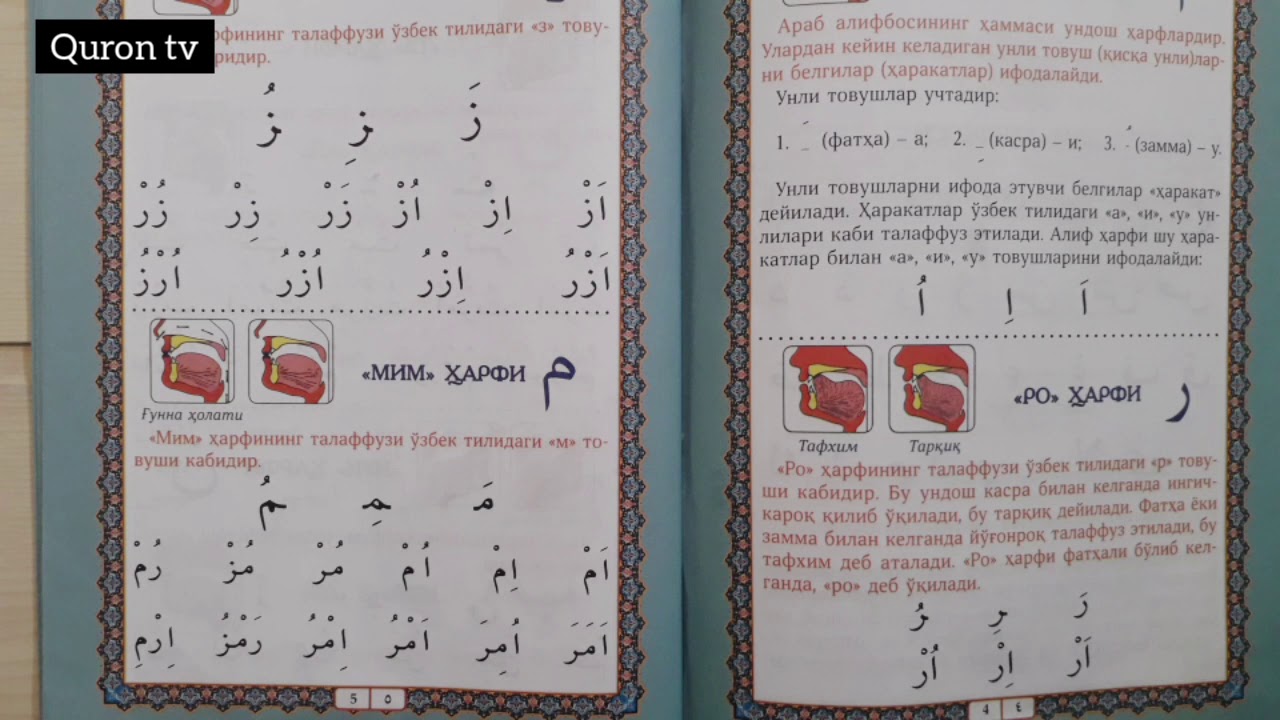 Quron tv
Араб алифбосининг ҳаммаси ундош ҳарфлардир.
Улардан кейин келадиган унли товуш (қисқа унли)лар-
ни белгилар (ҳаракатлар) ифодалайди.
Унли товушлар учтадир:
1. َ (фатҳа) – а; 2. ِ (касра) – и; 3. ُ (замма) – у.
Унли товушларни ифода этувчи белгилар «ҳаракат»
дейилади. Ҳаракатлар ўзбек тилидаги «а», «и», «у» ун-
лилари каби талаффуз этилади. Алиф ҳарфи шу ҳара-
катлар билан «а», «и», «у» товушларини ифодалайди:
اَ اِ اُ
«РО» ҲАРФИ ر
Тафхим Тарқиқ
«Ро» ҳарфининг талаффузи ўзбек тилидаги «р» тову-
ши кабидир. Бу ундош касра билан келганда ингич-
кароқ қилиб ўқилади, бу тарқиқ дейилади. Фатҳа ёки
замма билан келганда йўғонроқ талаффуз этилади, бу
тафхим деб аталади. «Ро» ҳарфи фатҳали бўлиб кел-
ганда, «ро» деб ўқилади.
رَ رِ رُ
اَرْ اِرْ اُرْ
4 ٤
талаффузи ўзбек тилидаги «з» тову-
زَ زِ زُ
اَزْ اِزْ اُزْ زَرْ زِرْ زُرْ
اَزْرُ اِزْرُ اُزْرُ اُرْزُ
«МИМ» ҲАРФИ م
Ғунна ҳолати
«Мим» ҳарфининг талаффузи ўзбек тилидаги «м» то-
вуши кабидир.
مَ مِ مُ
اَمْ اِمْ اُمْ مُرْ مُزْ رُمْ
اَمَرَ اُمِرَ اَمْرُ اِمْرُ رَمْزُ اِرْمِ
5 ٥